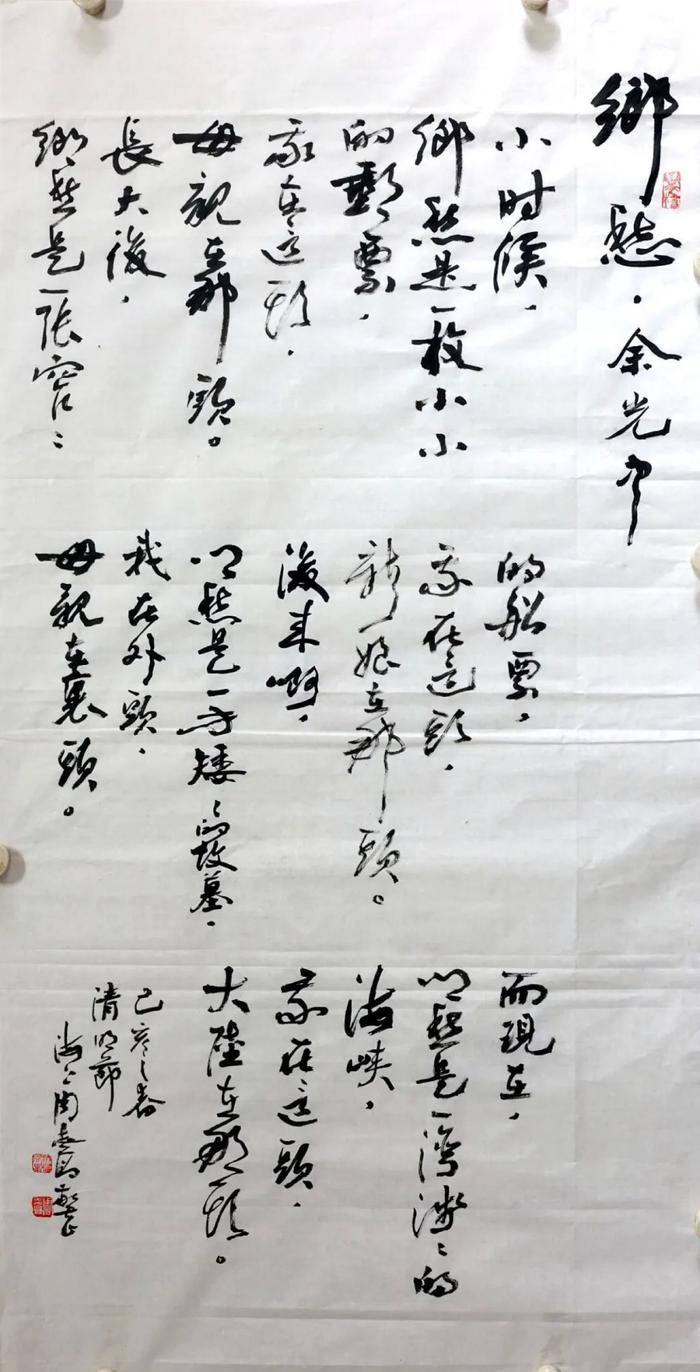 鄉愁，余光中
小时候，
鄉愁是一枚小小
的郵票，
我在這頭，
母親在那頭。
長大後，
鄉愁是一張窄〻
的船票，
我在這頭，
新娘在那頭。
後来啊，
鄉愁是一方矮〻的墳墓，
我在外頭，
母親在裏頭。
而現在，
鄉愁是一湾淺〻的
海峡，
我在這頭，
大陸在那頭。
己亥之春
清明節